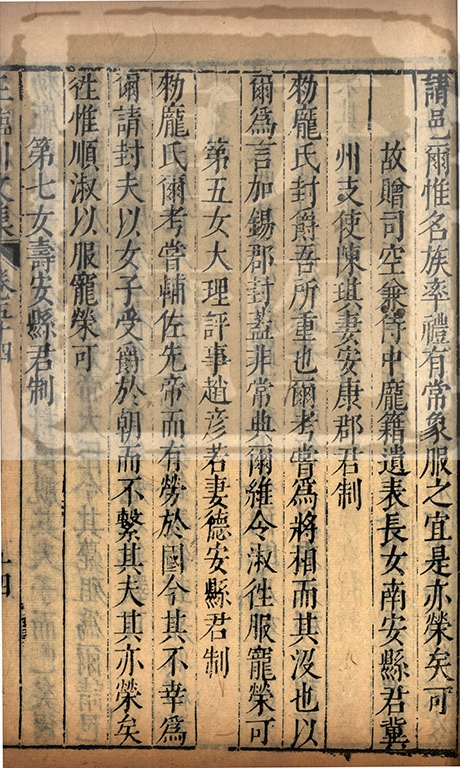 請邑爾惟名族率禮有常象服之宜是亦榮矣可
故贈司空兼侍中龎籍遺表長女南安縣君冀
州支使陳琪妻安康郡君制
勑龎氏封爵吾所重也爾考嘗爲將相而其没也以
爾爲言加錫郡封蓋非常典爾維令淑徃服寵榮可
第五女大理評事趙彦若妻德安縣君制
勑龎氏爾考嘗輔佐先帝而有勞於國今其不幸爲
爾請封夫以女子受爵於朝而不繫其夫其亦榮矣
徃惟順淑以服寵榮可
第七女壽安縣君制
王臨川文集 卷五十四 十四